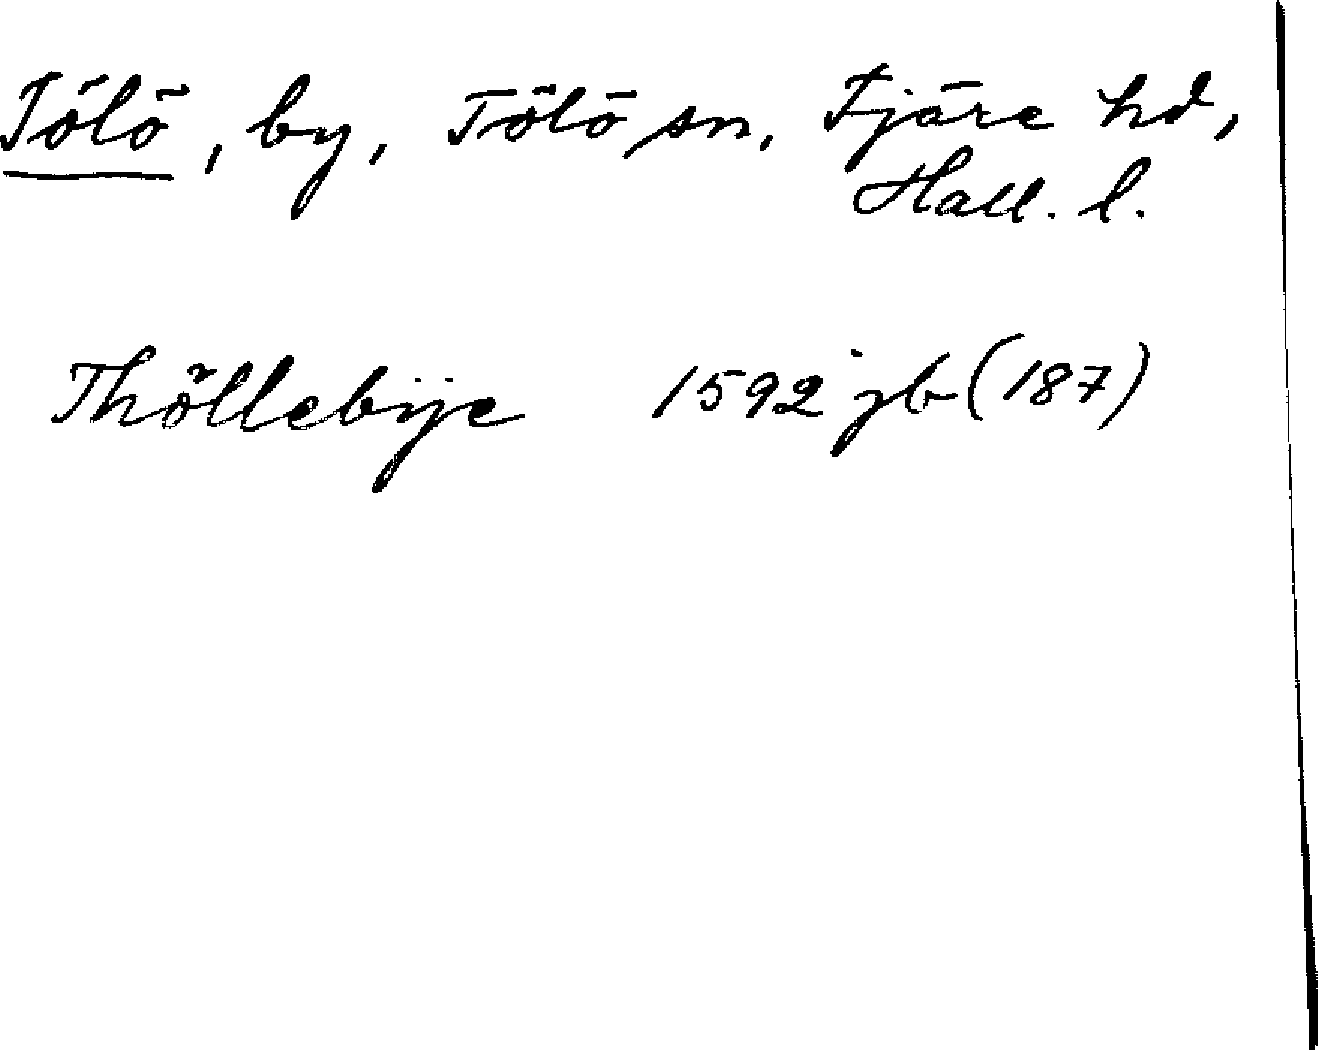 Tölö, by, Tölö sn, Fjäre hd,
Hall. l.
Thöllebije 1592 jb (187)